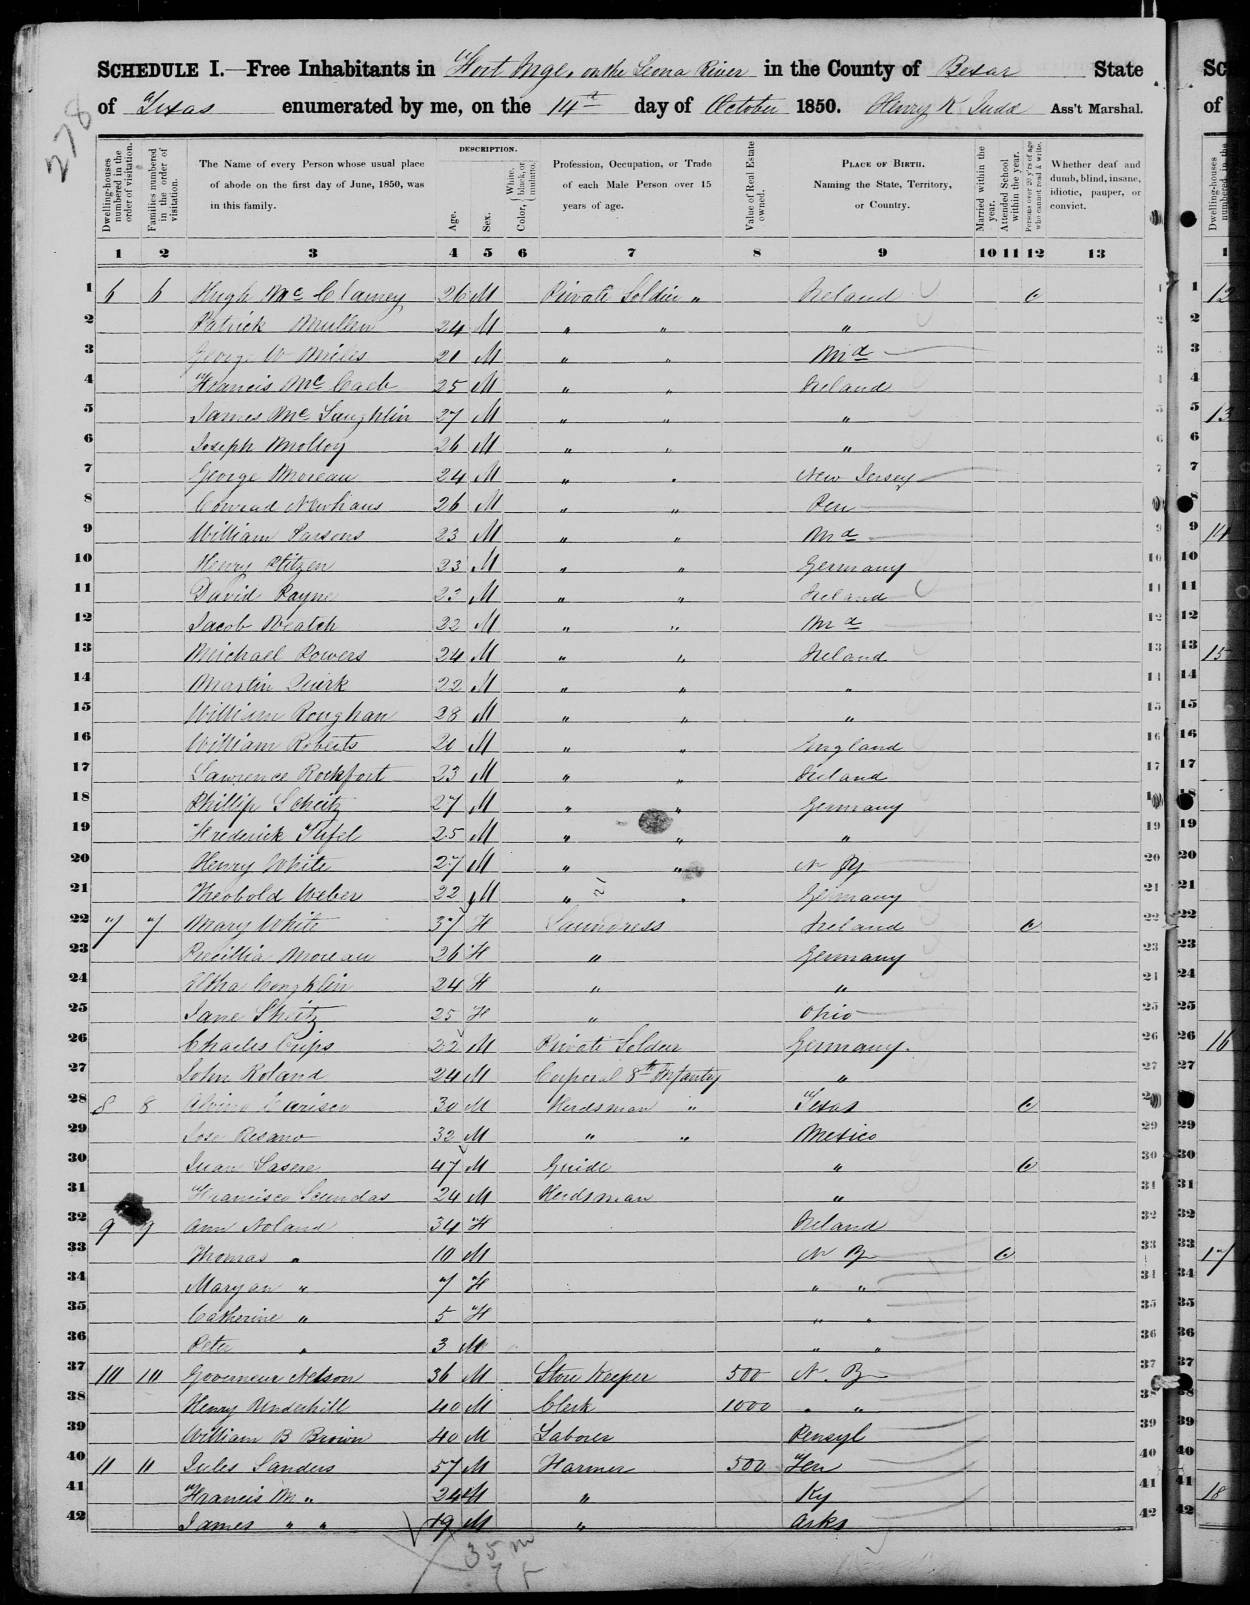 278
SCHEDULE I.—Free Inhabitants in Fort Inge, on the Leona River in the County of Bexar State
of Texas enumerated by me, on the 14th day of October 1850. Henry K Judd Ass't Marshal.
Dwelling-houses numbered in the order of visitation.
Families numbered in the order of visitation.
The Name of every Person whose usual place of abode on the first day of June, 1850, was in this family.
DESCRIPTION.
Age.
Sex.
Color, { White, black, or mulatto.
Profession, Occupation, or Trade of each Male Person over 15 years of age.
Value of Real Estate owned.
PLACE OF BIRTH. Naming the State, Territory, or Country.
Married within the year.
Attended School within the year.
Persons over 20 y'rs of age who cannot read & write.
Whether deaf and dumb, blind, insane, idiotic, pauper, or convict.
1 2 3 4 5 6 7 8 9 10 11 12 13
1 6 6 Hugh 26 M Private Soldier " Ireland 1
2 Patrick Mullen 24 M " " " 2
3 George W Miles 21 M " " Md 3
4 Francis McCaeb 25 M " " Ireland 4
5 James McLaughlin 27 M " " " 5
6 Joseph Molloy 26 M " " " 6
7 George Moreau 24 M " " New Jersey 7
8 Conrad Newhaus 26 M " " Pen 8
9 William Parsons 23 M " " Md 9
10 Henry 23 M " " Germany 10
11 David Payne 23 M " " Ireland 11
12 Jacob 22 M " " Md 12
13 Michael Powers 24 M " " Ireland 13
14 Martin Quirk 22 M " " " 14
15 William Roughan 28 M " " " 15
16 William Roberts 21 M " " England 16
17 Lawrence Rockfort 23 M " " Ireland 17
18 Phillip Scheitz 27 M " " Germany 18
19 Frederick Tufel 25 M " " " 19
20 Henry White 27 M " " N Y 20
21 Theobold Weber 22 M " 21 " Germany 21
22 7 7 Mary White 37 F Laundress Ireland 22
23 Moreau 26 F " Germany 23
24 Coughlin 24 F " " 24
25 Jane Sheitz 25 F " Ohio 25
26 Charles Crips 22 M Private Soldier Germany. 26
27 John Roland 24 M Corporal 8th Infantry " 27
28 8 8 30 M Herdsman " Texas 28
29 Jose 32 M " " Mexico 29
30 Juan 47 M Guide " 30
31 Francisco 24 M Herdsman " 31
32 9 9 Ann Noland 34 F Ireland 32
33 Thomas " 10 M N Y 33
34 Maryan " 7 F " " 34
35 Catherine " 5 F " " 35
36 Peter " 3 M " " 36
37 10 10 Governeur Nelson 36 M Store Keeper 500 N. Y 37
38 Henry Underhill 40 M Clerk 1000 " " 38
39 William B Brown 40 M Laborer Pensyl 39
40 11 11 Jules Sanders 57 M Farmer 500 Ten 40
41 Francis M " 24 M " Ky 41
42 James " " 19 M " Arks 42
35 m
7 F